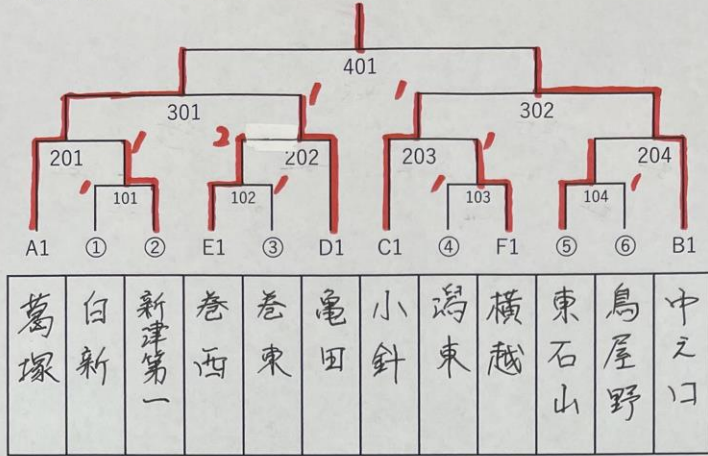 401
301
302
201
2
202
203
204
101
102
103
104
A1 ① ② E1 ③ D1 C1 ④ F1 ⑤ ⑥ B1
葛塚 白新 新津第一 巻西 巻東 亀田 小針 潟東 横越 東石山 鳥屋野 中之口